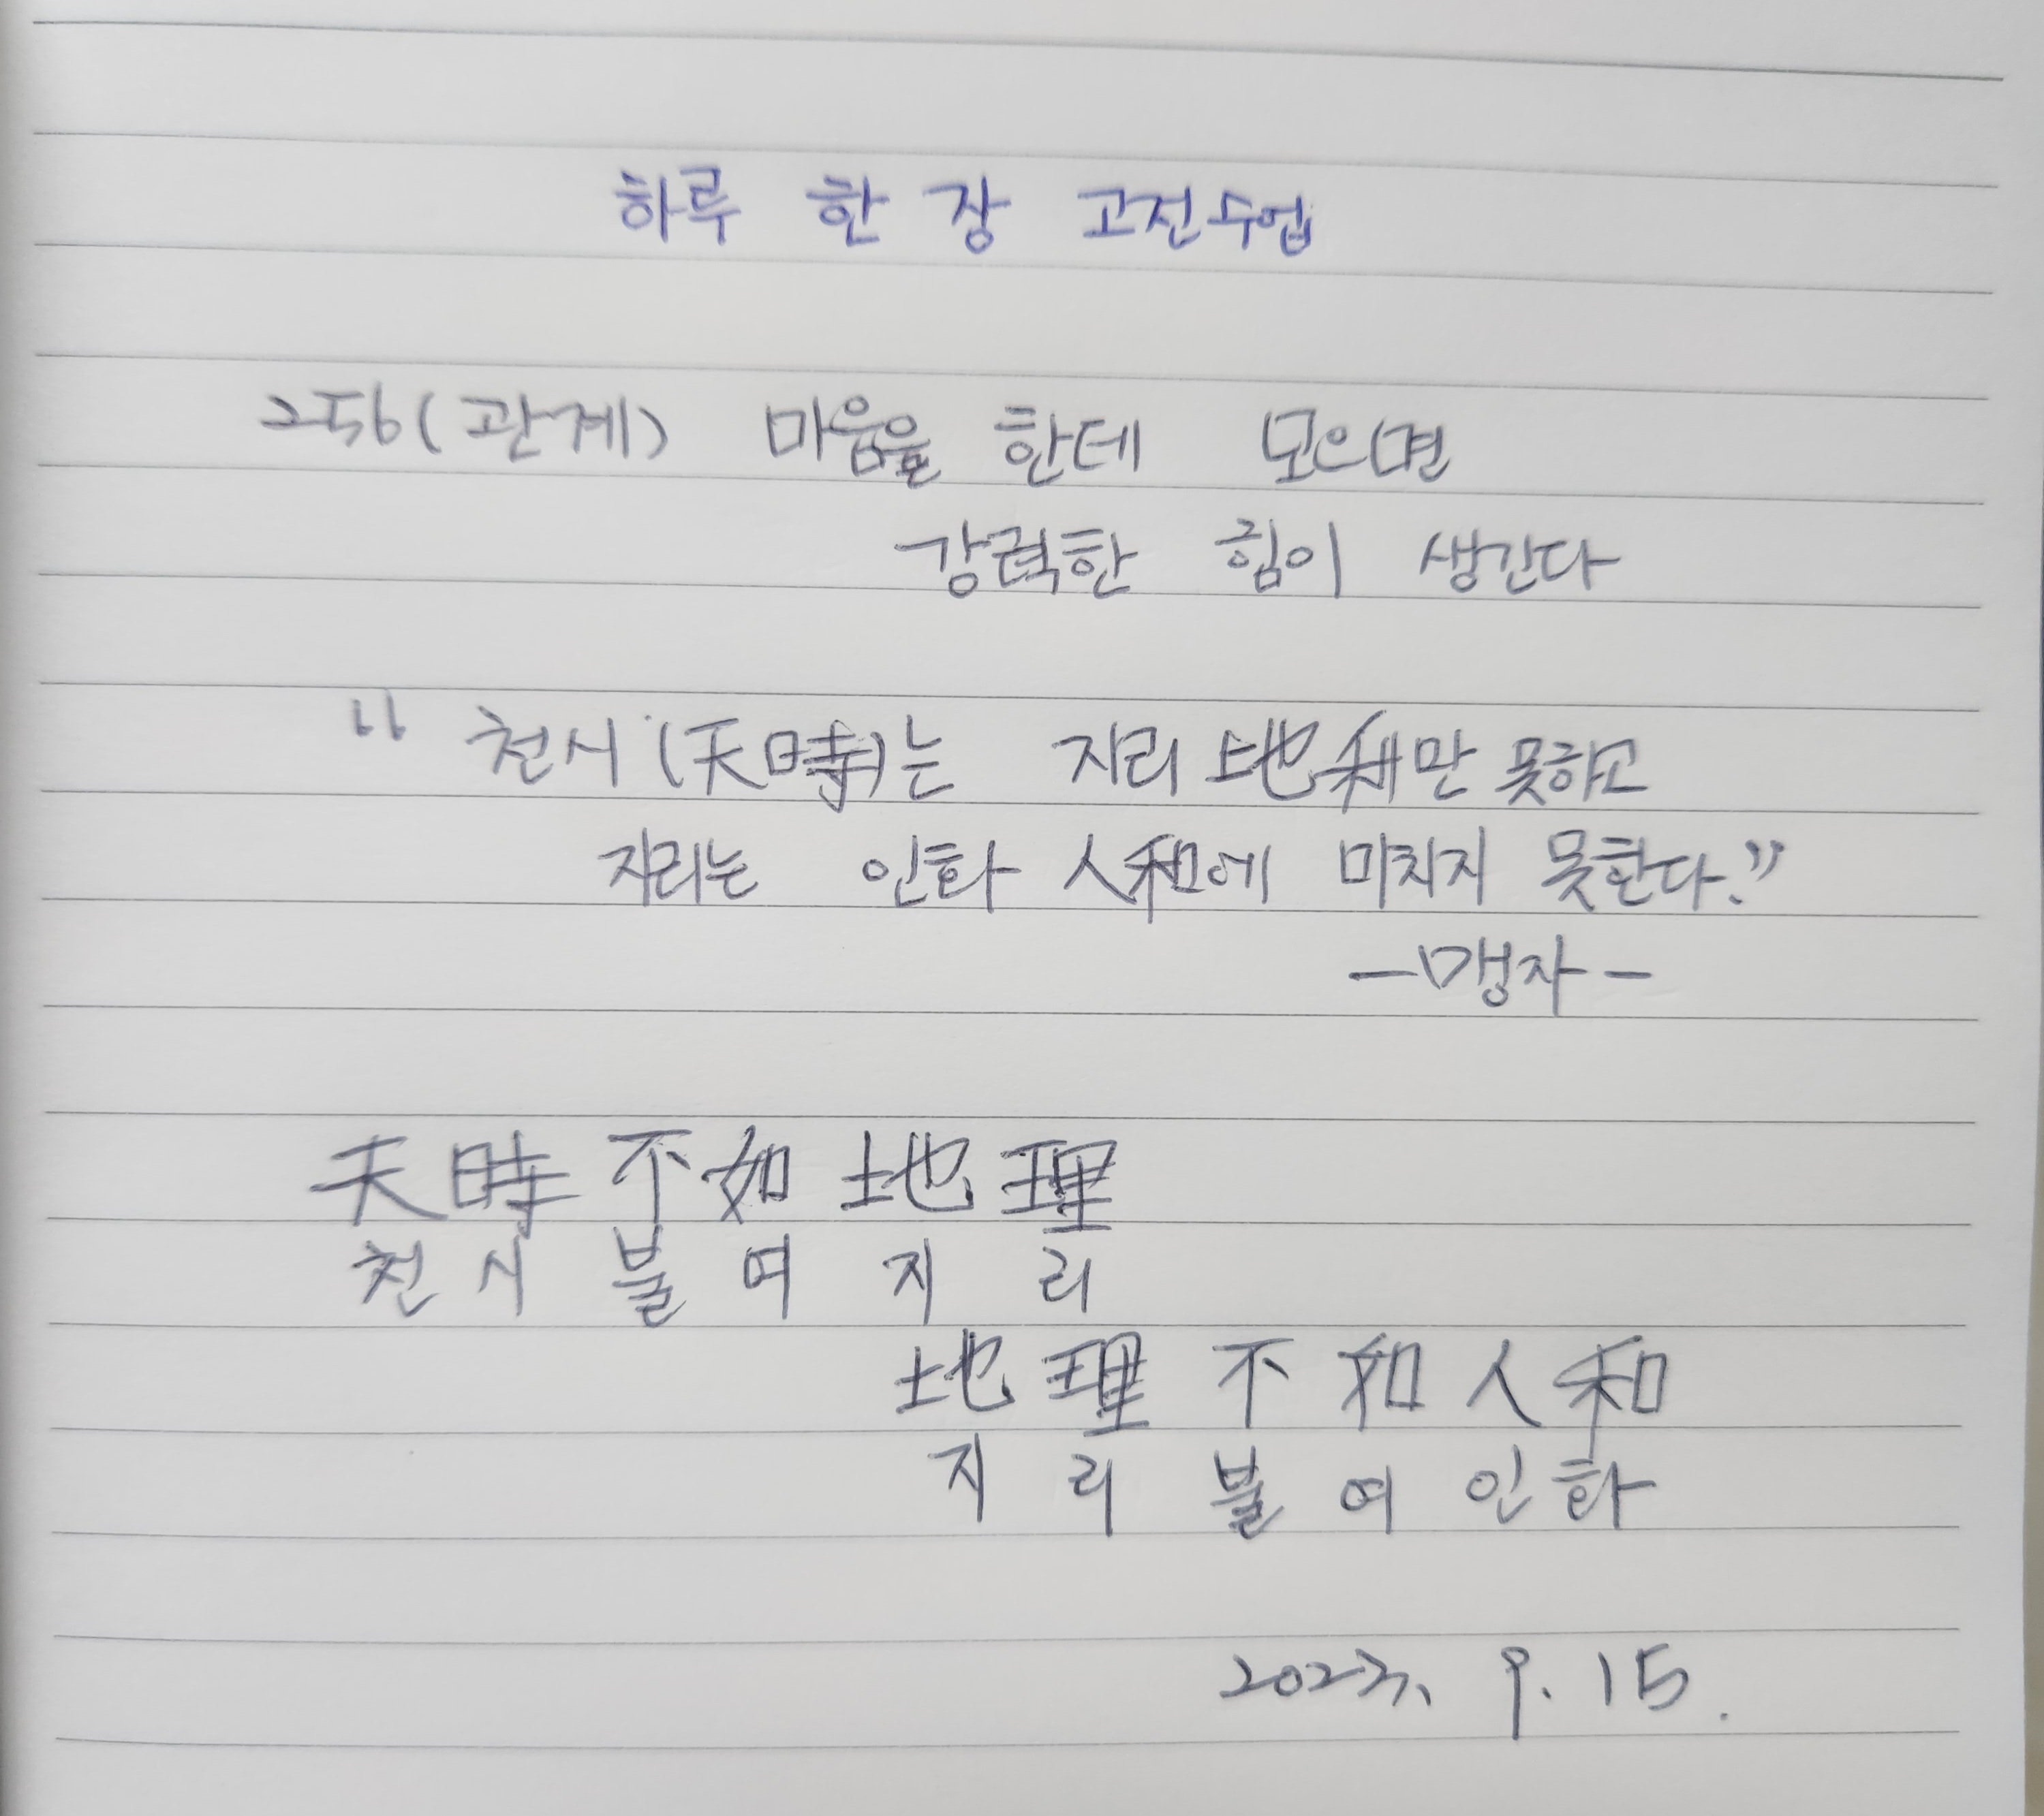 하루 한 장 고전수업
256(관계) 마음을 한데 모으면
강력한 힘이 생긴다
“ 천시(天時)는 지리 地利만 못하고
지리는 인화 人和에 미치지 못한다.”
-맹자-
天時不如地理
천시불여지리
地理不如人和
지리불여인화
2023. 9. 15.